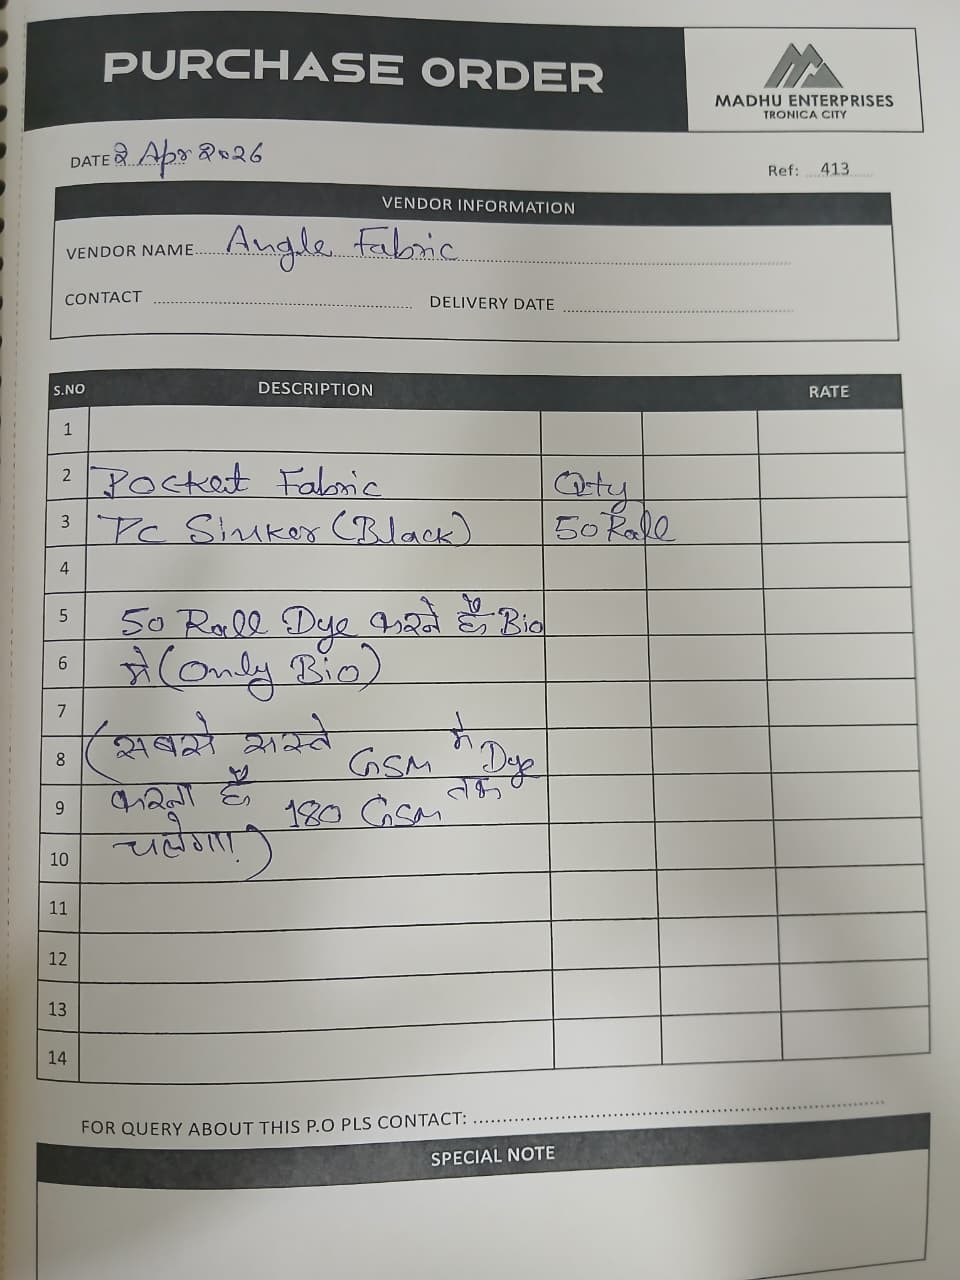 PURCHASE ORDER
MADHU ENTERPRISES
TRONICA CITY
DATE 2 Apr 2026
Ref: 413
VENDOR INFORMATION
VENDOR NAME Angle Fabric
CONTACT DELIVERY DATE
S.NO DESCRIPTION RATE
1
2 Pocket Fabric Qty
3 PC Sinker (Black) 50 Roll
4
5 50 Roll Dye करने है Bio
6 में (Only Bio)
7
8 (सबसे सस्ते GSM में Dye
9 करना है 180 GSM तक
10 चलेगा!)
11
12
13
14
FOR QUERY ABOUT THIS P.O PLS CONTACT:
SPECIAL NOTE